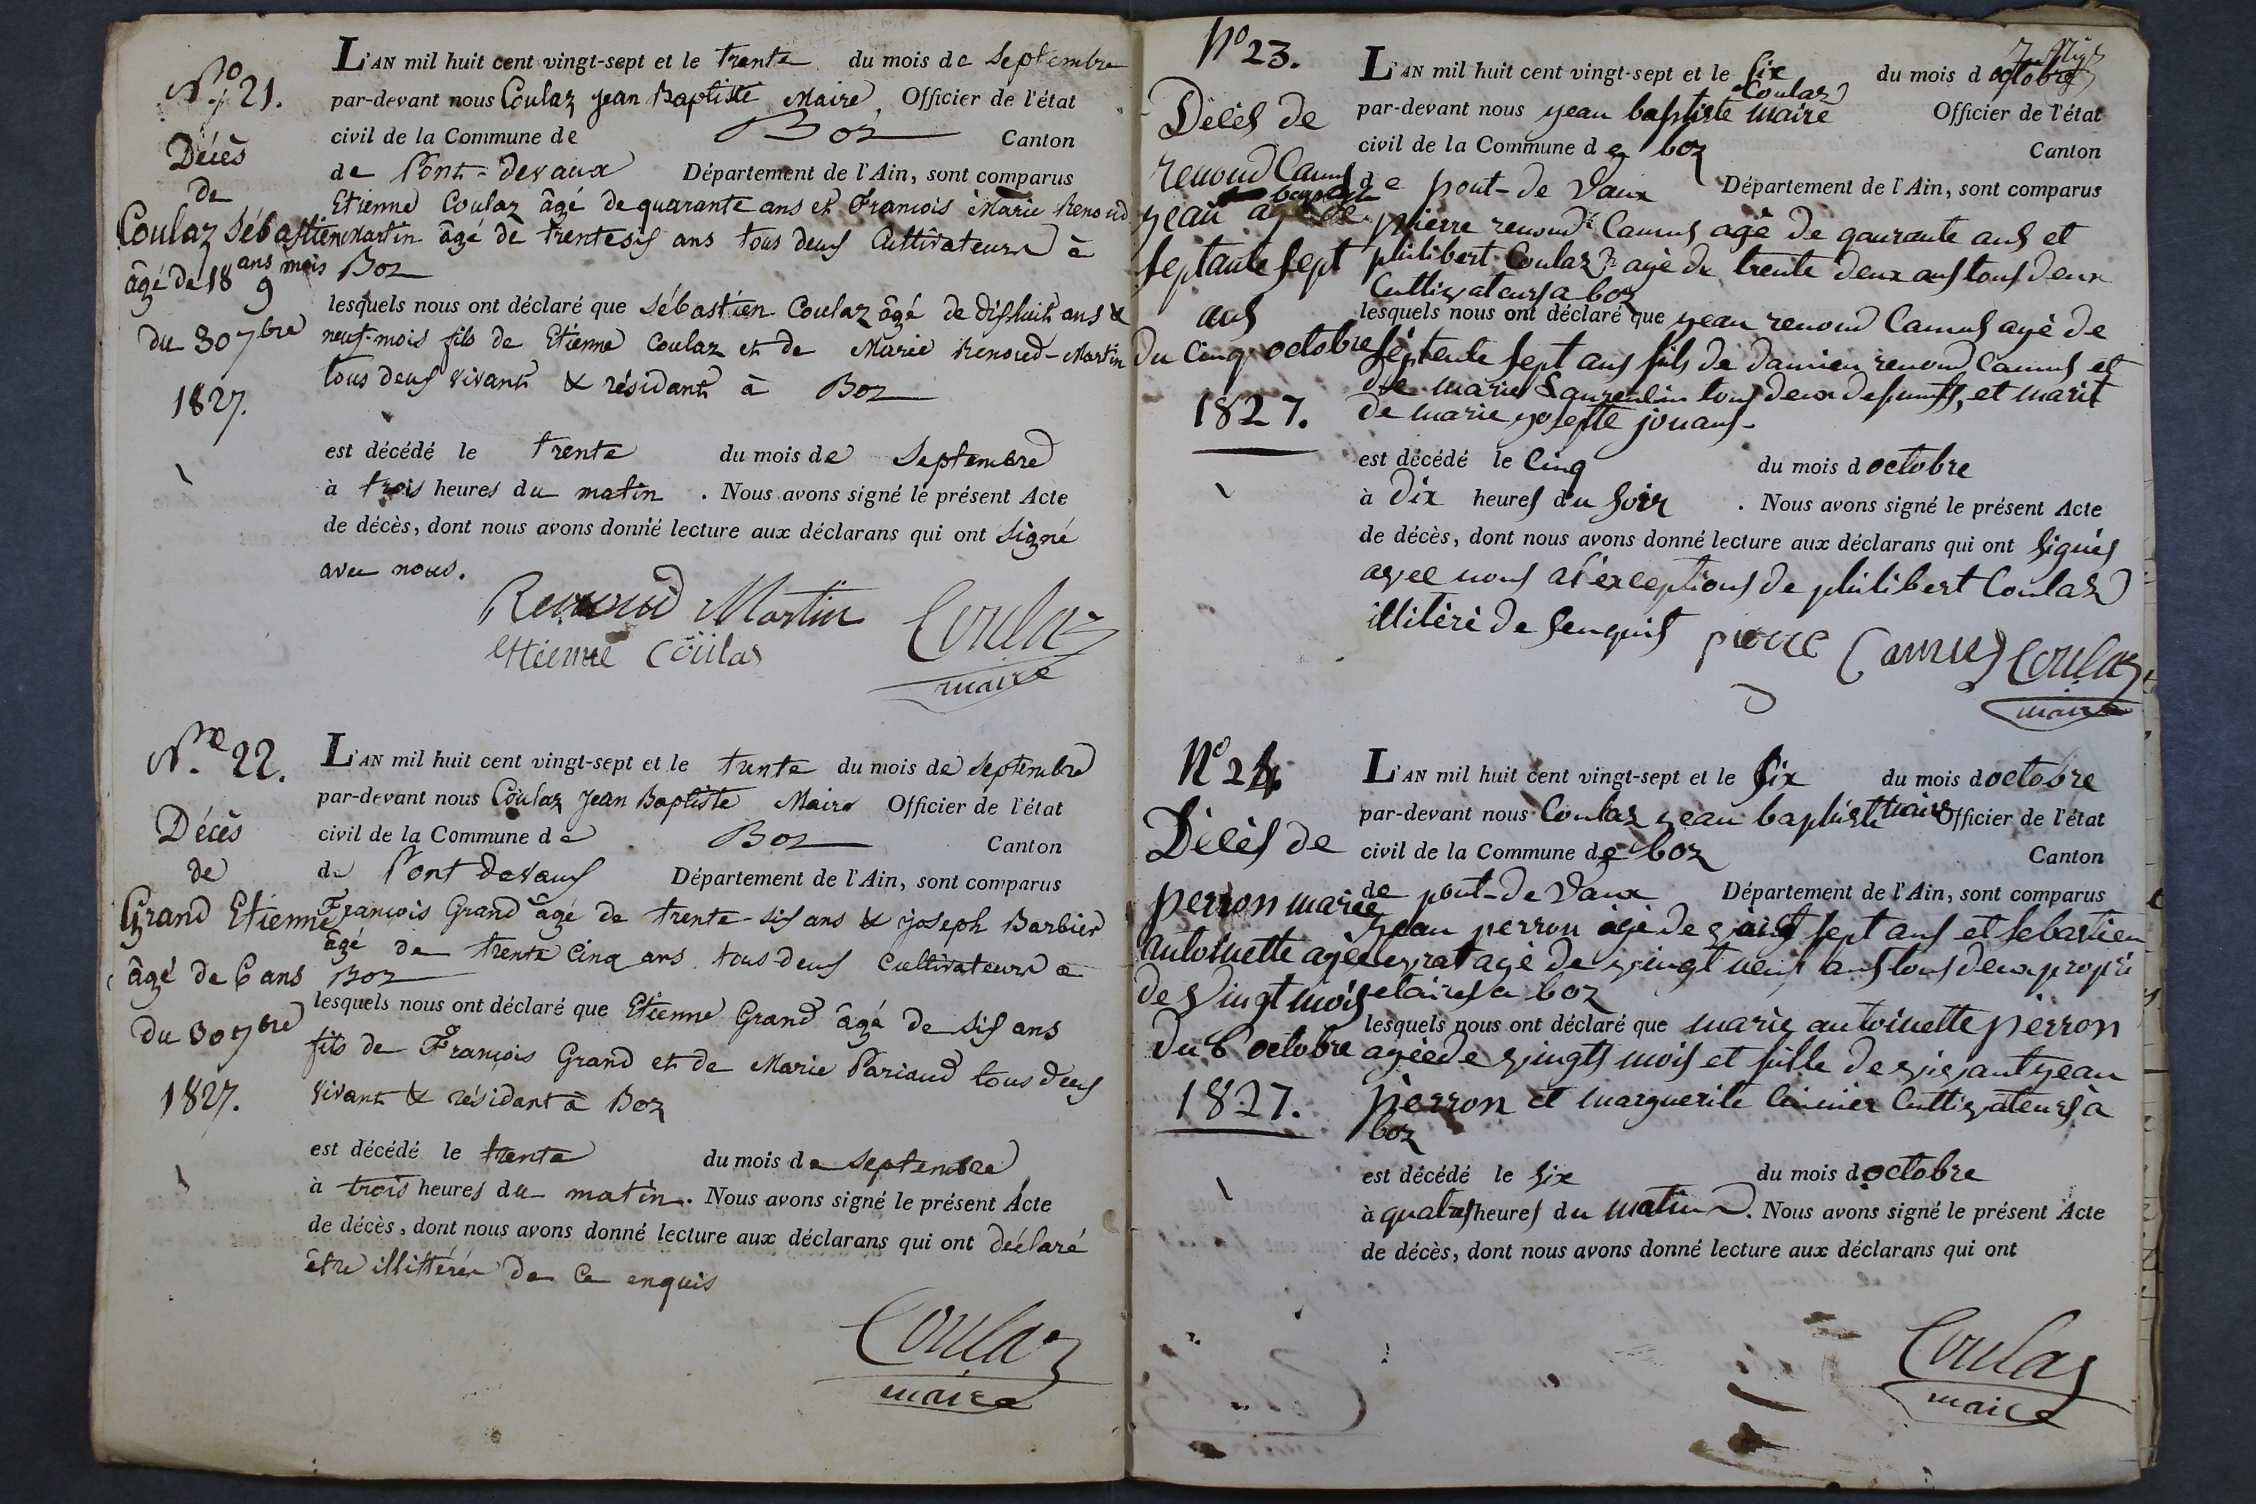 No 21.
Décès
de
Coulaz Sébastien
âgé de 18 ans 9 mois
du 30 7bre
1827.
L'AN mil huit cent vingt-sept et le trente du mois de Septembre
par-devant nous Coulaz Jean Baptiste Maire, Officier de l'état
civil de la Commune de Boz Canton
de Pont-devaux Département de l'Ain, sont comparus
Etienne Coulaz âgé de quarante ans et François Marie Renoud
Martin âgé de trentesix ans tous deux Cultivateurs à
Boz
lesquels nous ont déclaré que Sébastien Coulaz âgé de dixhuit ans &
neuf-mois fils de Etienne Coulaz et de Marie Renoud-Martin
tous deux vivants & résidants à Boz
est décédé le trente du mois de Septembre
à trois heures du matin. Nous avons signé le présent Acte
de décès, dont nous avons donné lecture aux déclarans qui ont signé
avec nous.
Renoud Martin Coulaz
ettienne Coulas maire
N.me 22.
Décès
de
Grand Etienne
âgé de 6 ans
du 30 7bre
1827.
L'AN mil huit cent vingt-sept et le trente du mois de Septembre
par-devant nous Coulaz Jean Baptiste Maire Officier de l'état
civil de la Commune de Boz Canton
de Pont devaux Département de l'Ain, sont comparus
François Grand âgé de trente-six ans & joseph Barbier
âgé de trente cinq ans tous deux Cultivateurs a
Boz
lesquels nous ont déclaré que Etienne Grand âgé de six ans
fils de François Grand et de Marie Pariaud tous deux
vivants & résidants à Boz
est décédé le trente du mois de Septembre
à trois heures du matin. Nous avons signé le présent Acte
de décès, dont nous avons donné lecture aux déclarans qui ont déclaré
être illittérés de ce enquis
Coulaz
maire
No 23.
Décés de
renoud Camus
yean agé de
septante sept
ans
du cinq octobre
1827.
L'AN mil huit cent vingt-sept et le six du mois d octobre
par-devant nous yean baptiste Coulaz maire Officier de l'état
civil de la Commune de boz Canton
de pont-de vaux Département de l'Ain, sont comparus
pierre renoud Camus agé de qaurante ans et
philibert Coulaz agé de trente deux ans tous deux
Cultivateurs a boz
lesquels nous ont déclaré que yean renoud Camus agé de
septente sept ans fils de damien renoud Camus et
de marie tous deux defunts, et marit
de marie yosepte jouans.
est décédé le cinq du mois d octobre
à dix heures du soir. Nous avons signé le présent Acte
de décès, dont nous avons donné lecture aux déclarans qui ont signés
avec nous a l'exceptions de philibert Coulaz
illitéré de senquist pierre Camus Coulaz
maire
No 24.
Décés de
perron marie
antoinette agée
de vingt mois
du 6 octobre
1827.
L'AN mil huit cent vingt-sept et le six du mois d octobre
par-devant nous Coulaz yean baptiste maire Officier de l'état
civil de la Commune de boz Canton
de pont-de vaux Département de l'Ain, sont comparus
yean perron agé de vingt sept ans et sebastien
agé de vingt neuf ans tous deux propri
etaires a boz
lesquels nous ont déclaré que marie antoinette perron
agée de vingts mois et fille de vivant yean
perron et marguerite Cultivateurs à
boz
est décédé le six du mois d octobre
à quatres heures du matin. Nous avons signé le présent Acte
de décès, dont nous avons donné lecture aux déclarans qui ont
Coulaz
maire